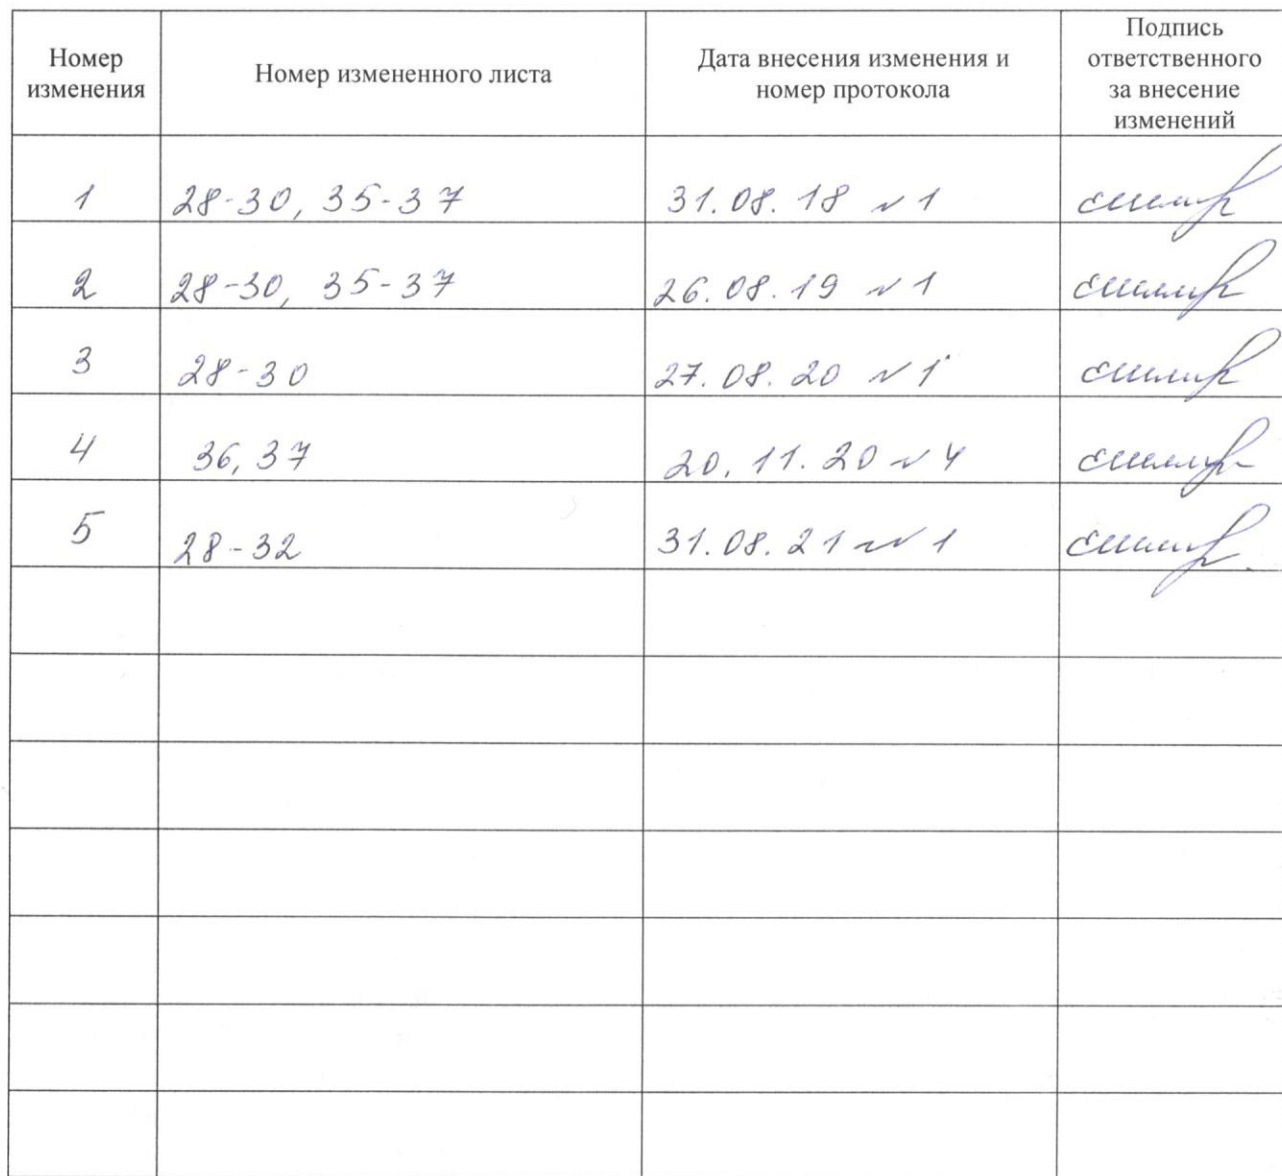 Номер изменения
Номер измененного листа
Дата внесения изменения и номер протокола
Подпись ответственного за внесение изменений
1 28-30, 35-37 31.08.18 №1
2 28-30, 35-37 26.08.19 №1
3 28-30 27.08.20 №1
4 36,37 20.11.20 №4
5 28-32 31.08.21 №1